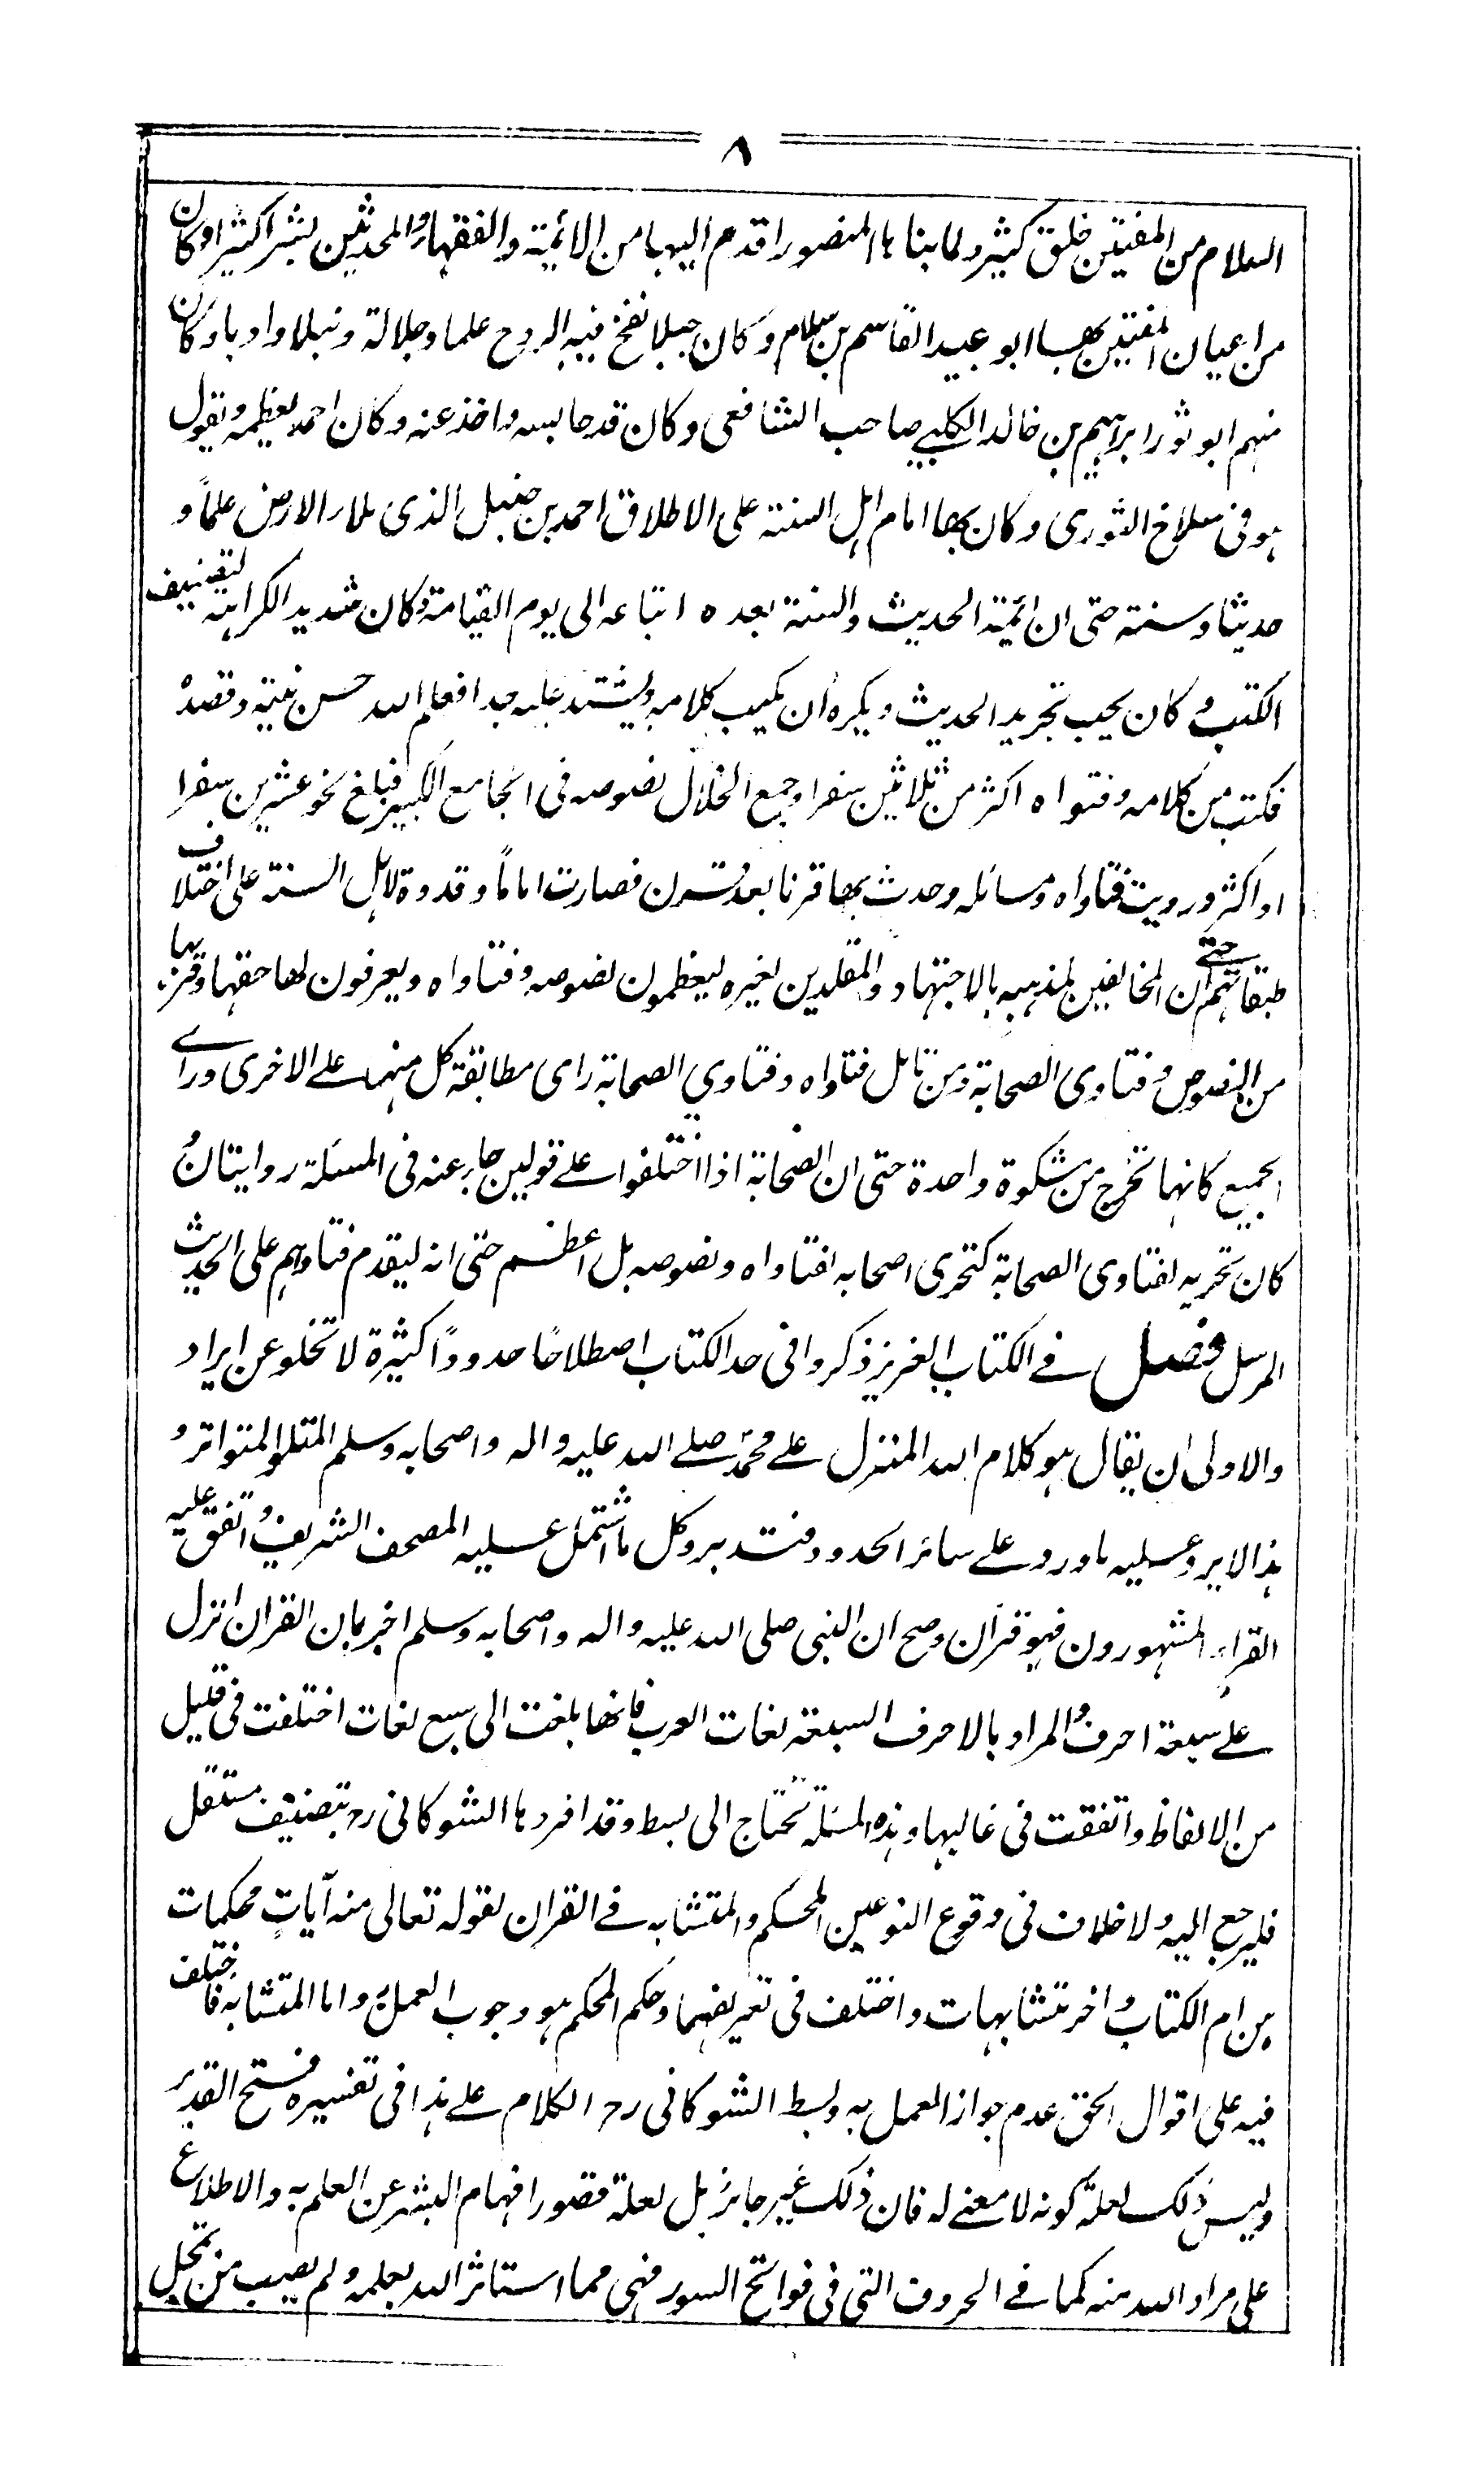 ٨
السلام من المفتين خلق كثير ولما بناها المنصور اقدم اليها من الائمة والفقهاء والمحدثين بشرا كثيرا وكان
من اعيان المفتين بها ابو عبيد القاسم بن سلام وكان جبلا نفخ فيه الروح علما وجلالة ونبلا وادبا وكان
منهم ابو ثور ابراهيم بن خالد الكلبي صاحب الشافعي وكان قد جالسه واخذ عنه وكان احمد يعظمه ويقول
هو في مسلاخ الثوري وكان بها امام اهل السنة على الاطلاق احمد بن حنبل الذي ملاء الارض علماً و
حديثا وسنة حتى ان ائمة الحديث والسنة بعده اتباعه الى يوم القيامة وكان شديد الكراهة لتصنيف
الكتب وكان يحب تجريد الحديث ويكره ان يكتب كلامه ويشتد عليه جدا فعلم الله حسن نيته وقصده
فكتب من كلامه وفتواه اكثر من ثلاثين سفرا وجمع الخلال نصوصه في الجامع الكبير فبلغ نحو عشرين سفرا
او اكثر ورويت فتاواه ومسائله وحدث بها قرنا بعد قرن فصارت اماماً وقدوة لاهل السنة على اختلاف
طبقاتهم حتى ان المخالفين لمذهبه بالاجتهاد والمقلدين لغيره ليعظمون نصوصه وفتاواه ويعرفون لها حقها وقربها
من النصوص وفتاوى الصحابة ومن تامل فتاواه وفتاوي الصحابة راى مطابقة كل منهما على الاخرى وراى
الجميع كانها تخرج من مشكوة واحدة حتى ان الصحابة اذا اختلفوا على قولين جاء عنه في المسئلة روايتان و
كان تحريه لفتاوى الصحابة كتحرى اصحابه لفتاواه ونصوصه بل اعظم حتى انه ليقدم فتاوىهم على الحديث
المرسل فصل في الكتاب العزيز ذكروا في حد الكتاب اصطلاحًا حدوداً كثيرة لا تخلو عن ايراد
والاولى ان يقال هو كلام الله المنزل على محمد صلى الله عليه واله واصحابه وسلم المتلو المتواتر و
هذا لا يرد عليه ما ورد على سائر الحدود فتدبر وكل ما اشتمل عليه المصحف الشريف واتفق عليه
القراء المشهورون فهو قرآن وصح ان النبي صلى الله عليه واله واصحابه وسلم اخبر بان القران انزل
على سبعة احرف والمراد بالاحرف السبعة لغات العرب فانها بلغت الى سبع لغات اختلفت في قليل
من الالفاظ واتفقت في غالبها وهذه المسئلة تحتاج الى بسط وقد افردها الشوكاني رح بتصنيف مستقل
فليرجع اليه ولا خلاف في وقوع النوعين المحكم والمتشابه في القران لقوله تعالى منه آيات محكمات
هن ام الكتاب واخر متشابهات واختلف في تعريفهما وحكم المحكم هو وجوب العمل به واما المتشابه فاختلف
فيه على اقوال الحق عدم جواز العمل به وبسط الشوكاني رح الكلام على هذا في تفسيره فتح القدير
وليس ذلك لعلة كونه لا معنى له فان ذلك غير جائز بل لعلة قصور افهام البشر عن العلم به والاطلاع
على مراد الله منه كما في الحروف التي في فواتح السور فهي مما استاثر الله بعلمه ولم يصب من تمحل